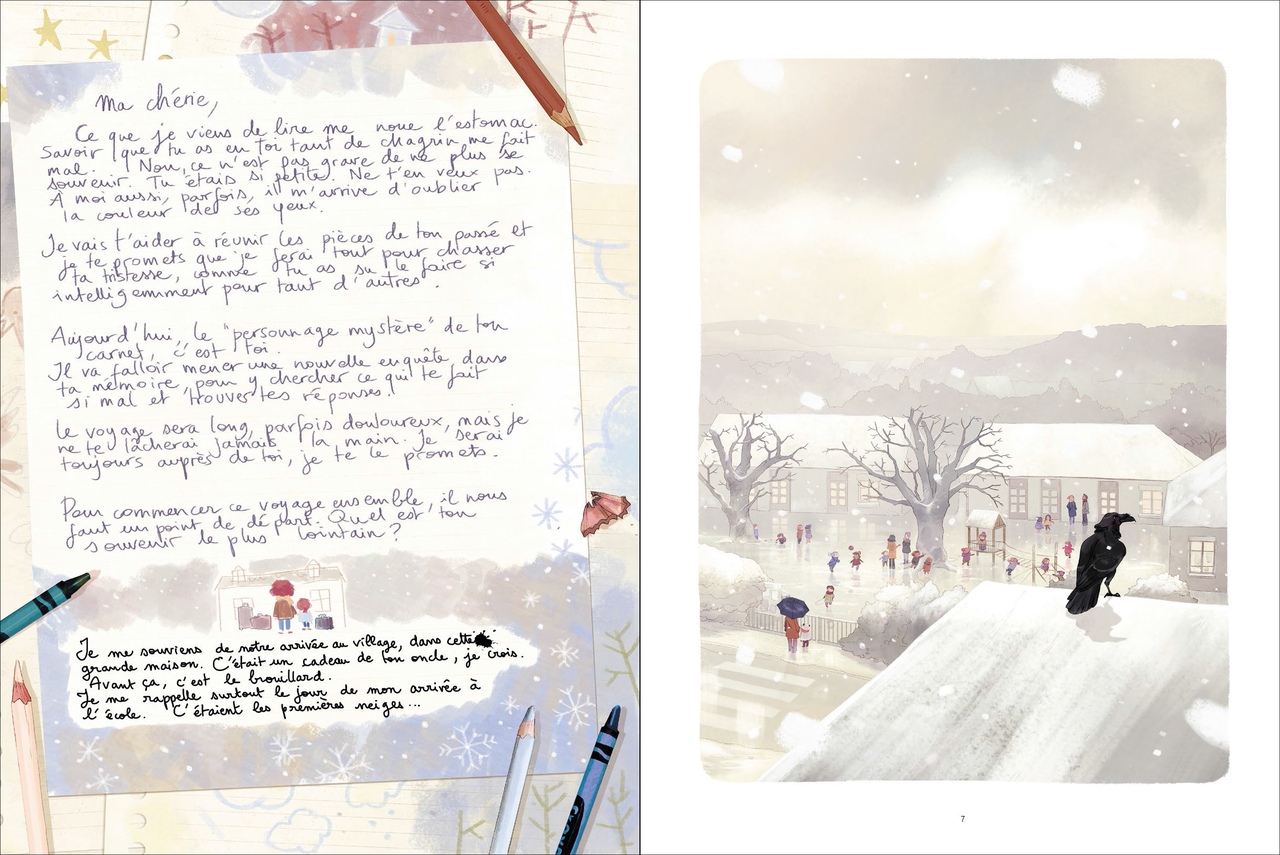 Ma chérie,
Ce que je viens de lire me noue l'estomac.
Savoir que tu as en toi tant de chagrin me fait
mal. Non, ce n'est pas grave de ne plus se
souvenir. Tu étais si petite. Ne t'en veux pas.
À moi aussi, parfois, il m'arrive d'oublier
la couleur de ses yeux.
Je vais t'aider à réunir les pièces de ton passé et
je te promets que je ferai tout pour chasser
ta tristesse, comme tu as su le faire si
intelligemment pour tant d'autres.
Aujourd'hui, le "personnage mystère" de ton
carnet, c'est toi.
Il va falloir mener une nouvelle enquête, dans
ta mémoire, pour y chercher ce qui te fait
si mal et trouver tes réponses.
Le voyage sera long, parfois douloureux, mais je
ne te lâcherai jamais la main. Je serai
toujours auprès de toi, je te le promets.
Pour commencer ce voyage ensemble, il nous
faut un point de départ. Quel est ton
souvenir le plus lointain ?
Je me souviens de notre arrivée au village, dans cette
grande maison. C'était un cadeau de ton oncle, je crois.
Avant ça, c'est le brouillard.
Je me rappelle surtout le jour de mon arrivée à
l'école. C'étaient les premières neiges...
7